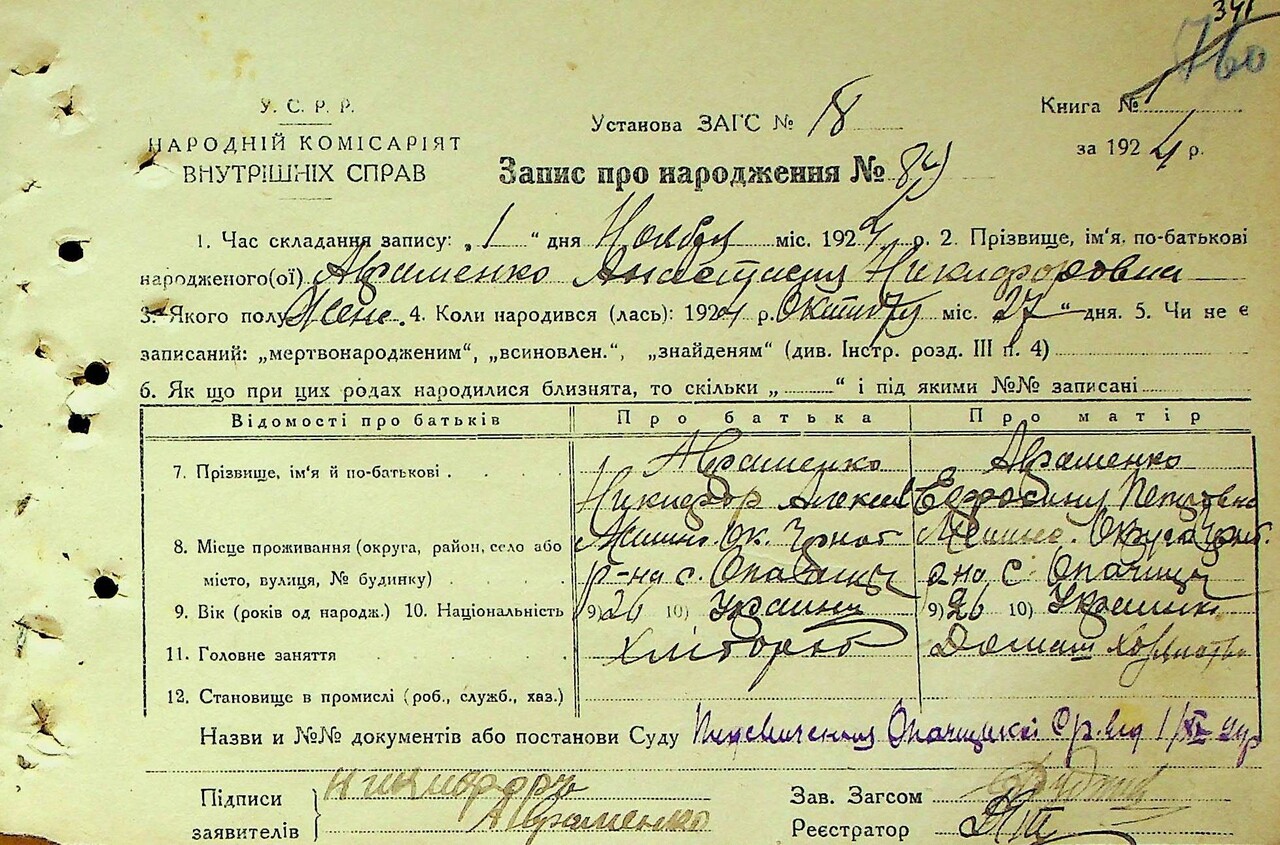 341
760
У. С. Р. Р.
НАРОДНІЙ КОМІСАРІЯТ
ВНУТРІШНІХ СПРАВ
Установа ЗАГС № 18
Книга № 1
за 1924 р.
Запис про народження № 84
1. Час складання запису: „1“ дня Ноября міс. 1924 р. 2. Прізвище, ім'я, по-батькові
народженого(ої) Авраменко Анастасия Никифоровна
3. Якого полу Женс. 4. Коли народився (лась): 1924 р. Октября міс. 27“ дня. 5. Чи не є
записаний: „мертвонародженим“, „всиновлен.“, „знайденям“ (див. Інстр. розд. III п. 4)
6. Як що при цих родах народилися близнята, то скільки „ “ і під якими №№ записані
Відомості про батьків Про батька Про матір
7. Прізвище, ім'я й по-батькові Авраменко Авраменко
Никифор Алексеев Ефросиния Петровна
8. Місце проживання (округа, район, село або
місто, вулиця, № будинку) р-на с. Опачичи р-на с. Опачичи
9. Вік (років од народж.) 10. Національність 9) 26 10) Украинц 9) 26 10) Украинк
11. Головне заняття Хлібороб Домаш хозяйство
12. Становище в промислі (роб., служб., хаз.)
Назви и №№ документів або постанови Суду Опачицкой Ср. від 1/XI 24 р
Підписи
заявителів
Никифоръ
Авраменко
Зав. Загсом
Реєстратор